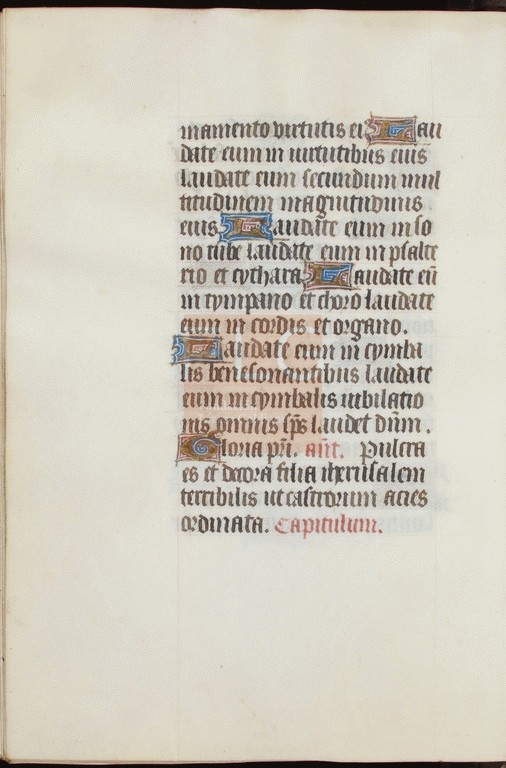 mamento virtutis ei Lau
date eum in uirtutibus eius
laudate eum secundum mul
titudinem magnitudinis
eius Laudate eum in so
no tube laudate eum in psalte
rio et cythara Laudate eū
in tympano et choro laudate
eum in cordis et organo.
Laudate eum in cymba
lis benesonantibus laudate
eum in cymbalis iubilatio
nis omnis sp̄s laudet dūm.
Gloria pri. añt. Pulcra
es et decora filia iherusalem
terribilis ut castrorum acies
ordinata. Capitulum.